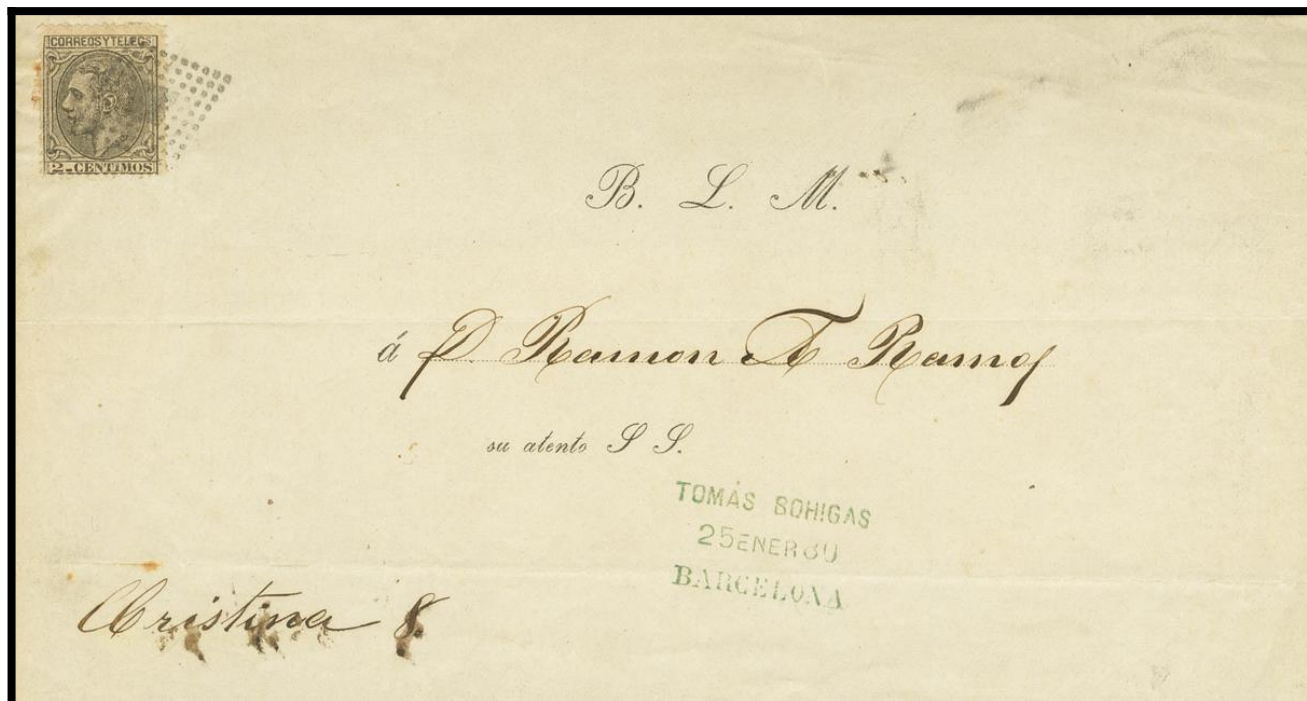 CORREOS Y TELEGS
2 CENTIMOS
B. L. M.
á D. Ramon A Ramos
su atento S S.
TOMÁS BOHIGAS
25 ENER 80
BARCELONA
Cristina 8.